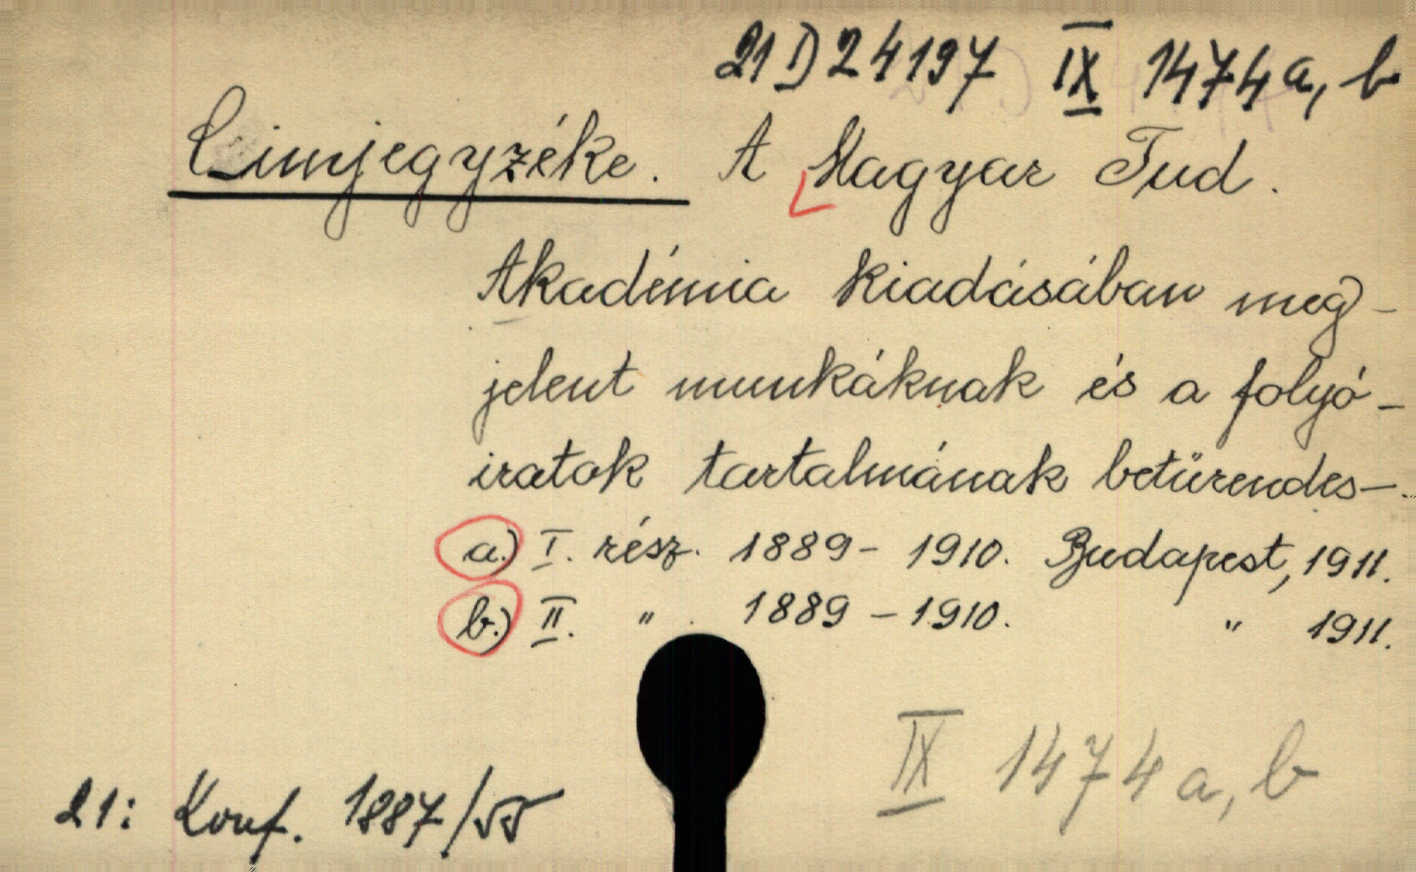 21D24197 IX 1474 a, b
Cimjegyzéke. A Magyar Tud.
Akadémia kiadásában meg-
jelent munkáknak és a folyó-
iratok tartalmának betürendes-
a.) I. rész. 1889-1910. Budapest, 1911.
b.) II. " . 1889-1910. " 1911.
IX 1474 a, b
21: Konf. 1887/55